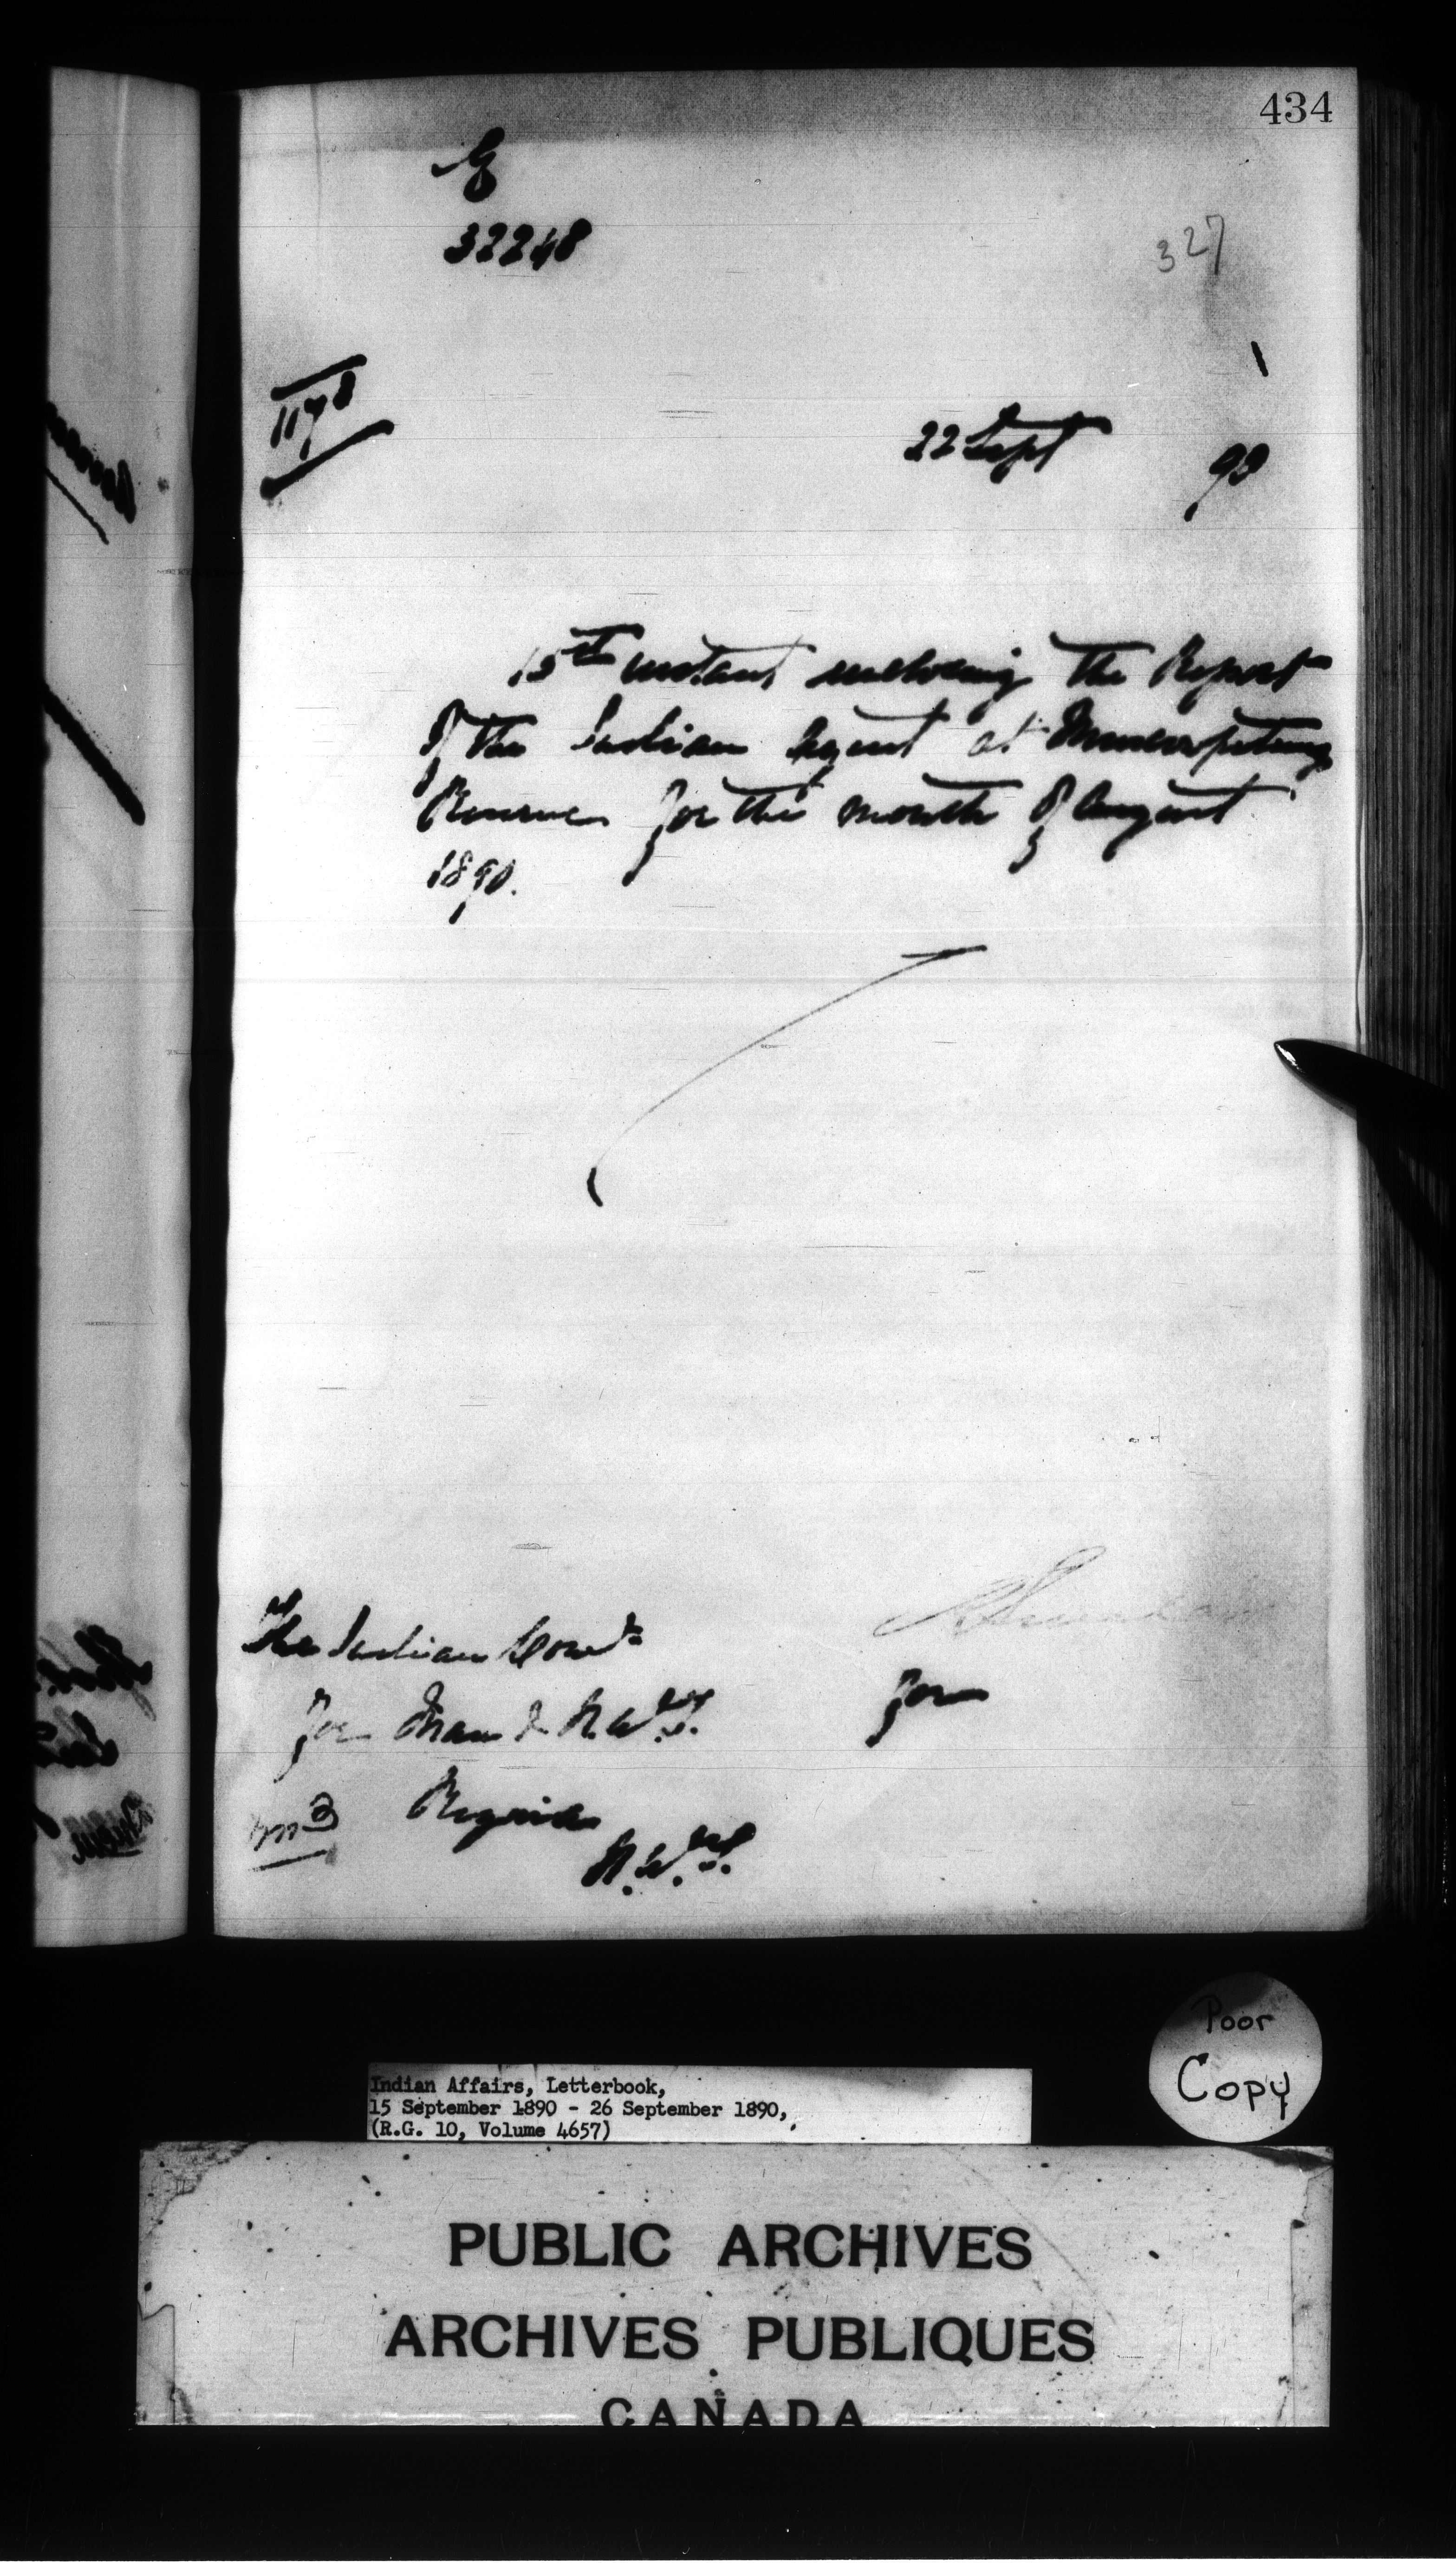 434
32248
327
1178
22 Sept 90
15th instant enclosing the Report
of the Indian Agent at Muscowpetung
Reserve for the month of August
1890.
The Indian Comr
for Man & N.W.T.
for
Regina
N.W.T.
Poor
Copy
Indian Affairs, Letterbook,
15 September 1890 - 26 September 1890,
(R.G. 10, Volume 4657)
PUBLIC ARCHIVES
ARCHIVES PUBLIQUES
CANADA